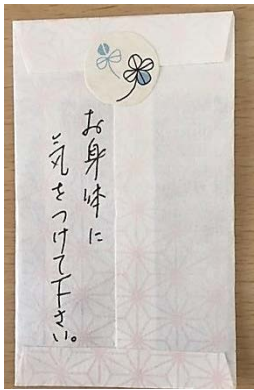 お身体に
気をつけて下さい。